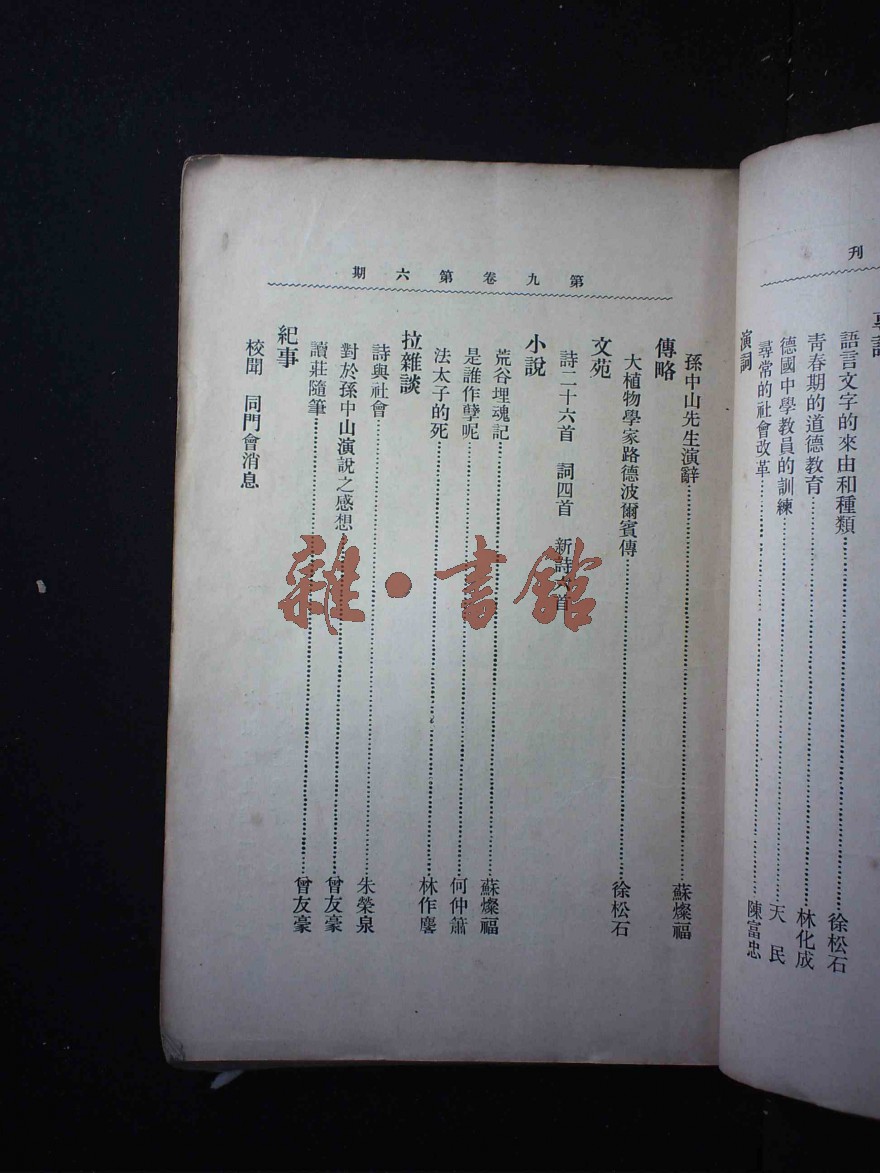 刊
語言文字的來由和種類 徐松石
青春期的道德教育 林化成
德國中學教員的訓練 天民
演詞
尋常的社會改革 陳富忠
第九卷第六期
孫中山先生演辭 蘇燦福
傳略
大植物學家路德波爾賓傳 徐松石
文苑
詩二十六首 詞四首 新詩六首
小說
荒谷埋魂記 蘇燦福
是誰作孽呢 何仲簫
法太子的死 林作麐
拉雜談
詩與社會 朱榮泉
對於孫中山演說之感想 曾友豪
讀莊隨筆 曾友豪
紀事
校聞 同門會消息
雜·書館